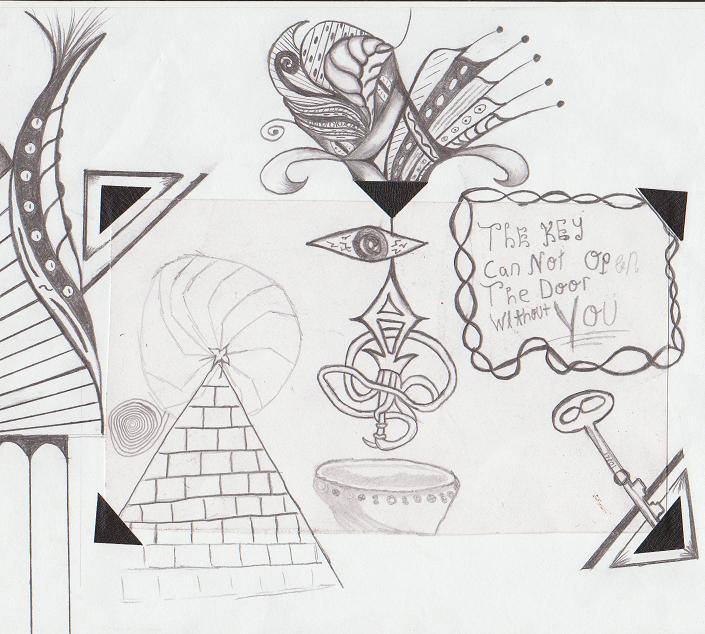 The KEY
Can Not Open
The Door
Without YOU